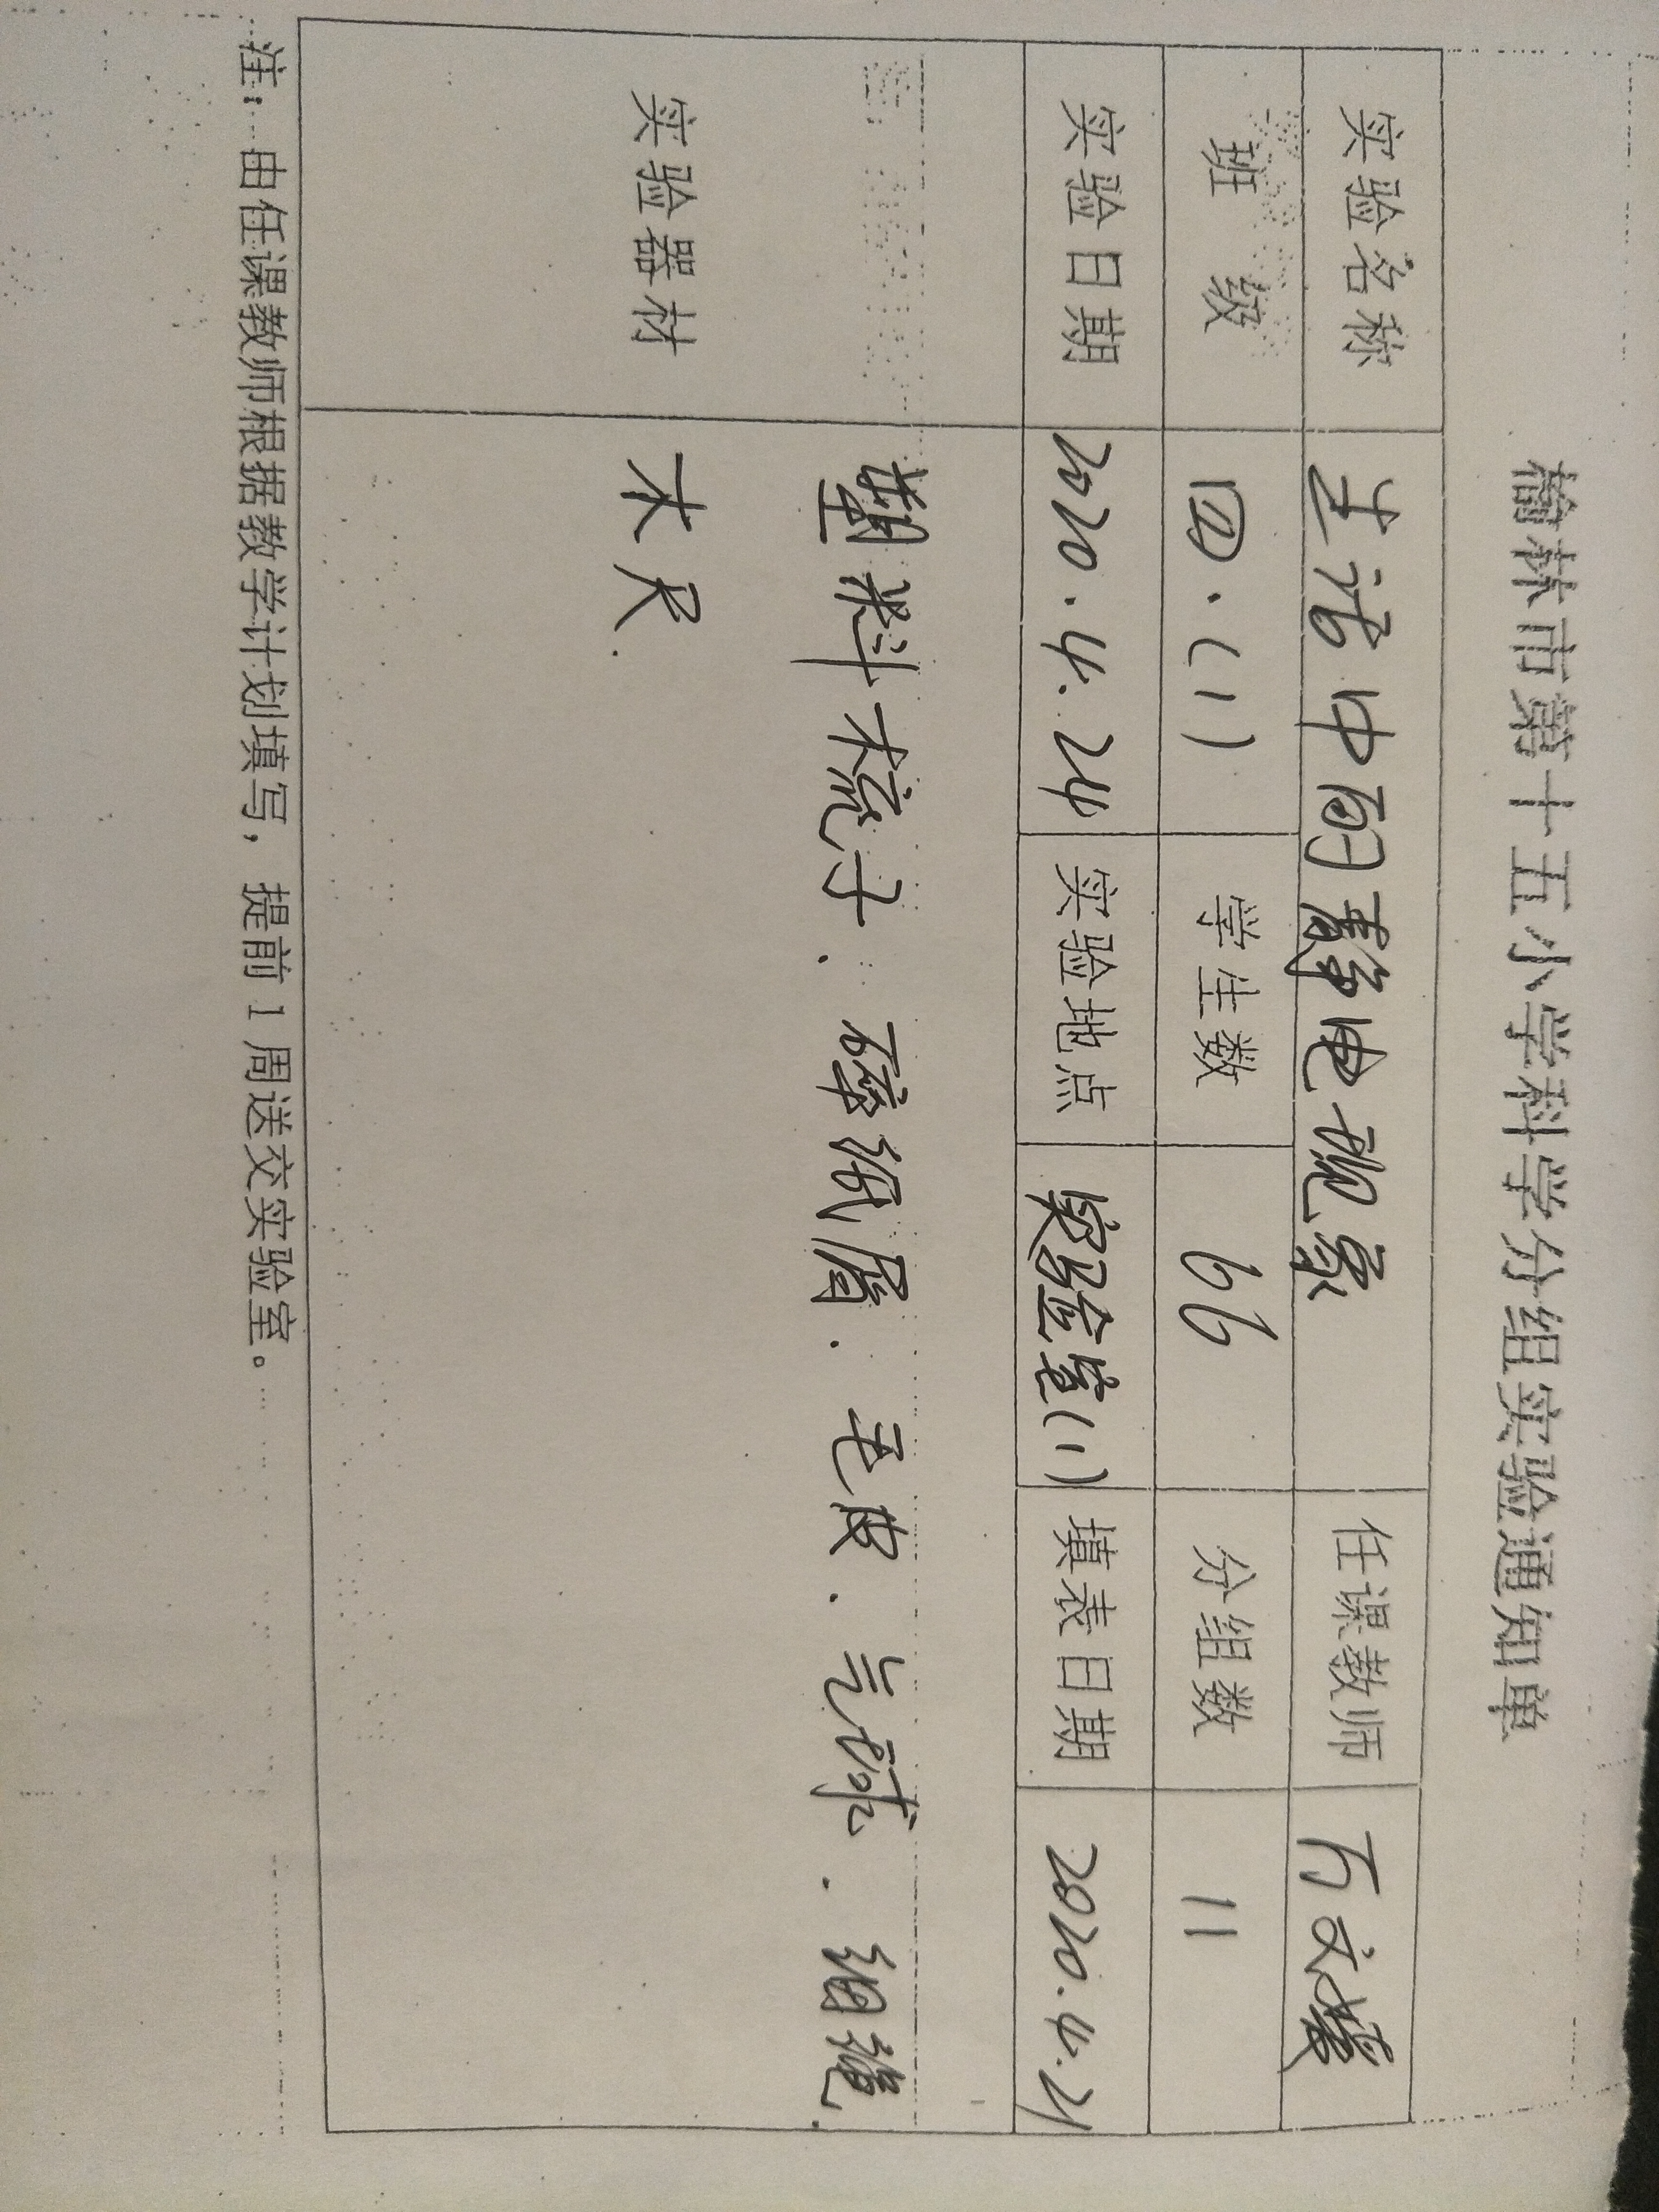 榆林市第十五小学科学分组实验通知单
实验名称 生活中的静电现象 任课教师 万文慧
班 级 四.(1) 学生数 66 分组数 11
实验日期 2020.4.24 实验地点 实验室(1) 填表日期 2020.4.21
实验器材 塑料梳子. 碎纸屑. 毛皮. 气球. 细绳.
木尺.
注:由任课教师根据教学计划填写,提前1周送交实验室。